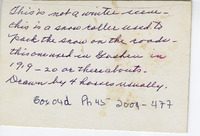 This is not a winter scene -
this is a snow roller used to
pack the snow on the roads -
this one used in Goshen in
1919-20 or thereabouts.
Drawn by 4 horses usually.
Ph 45 2001-477